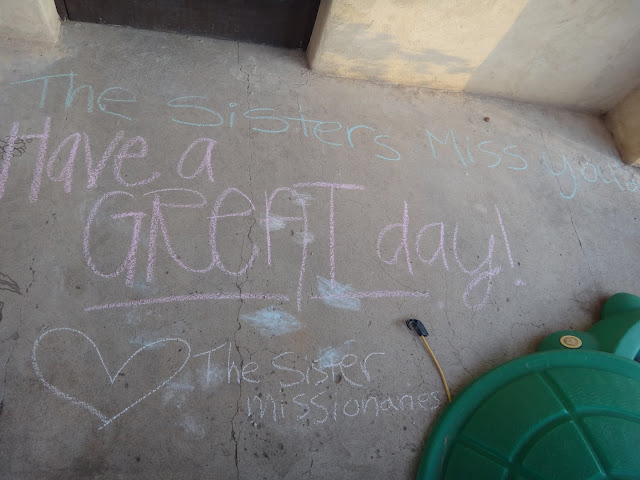 The Sisters Miss you!
Have a
GREAT day!
The Sister
missionaries